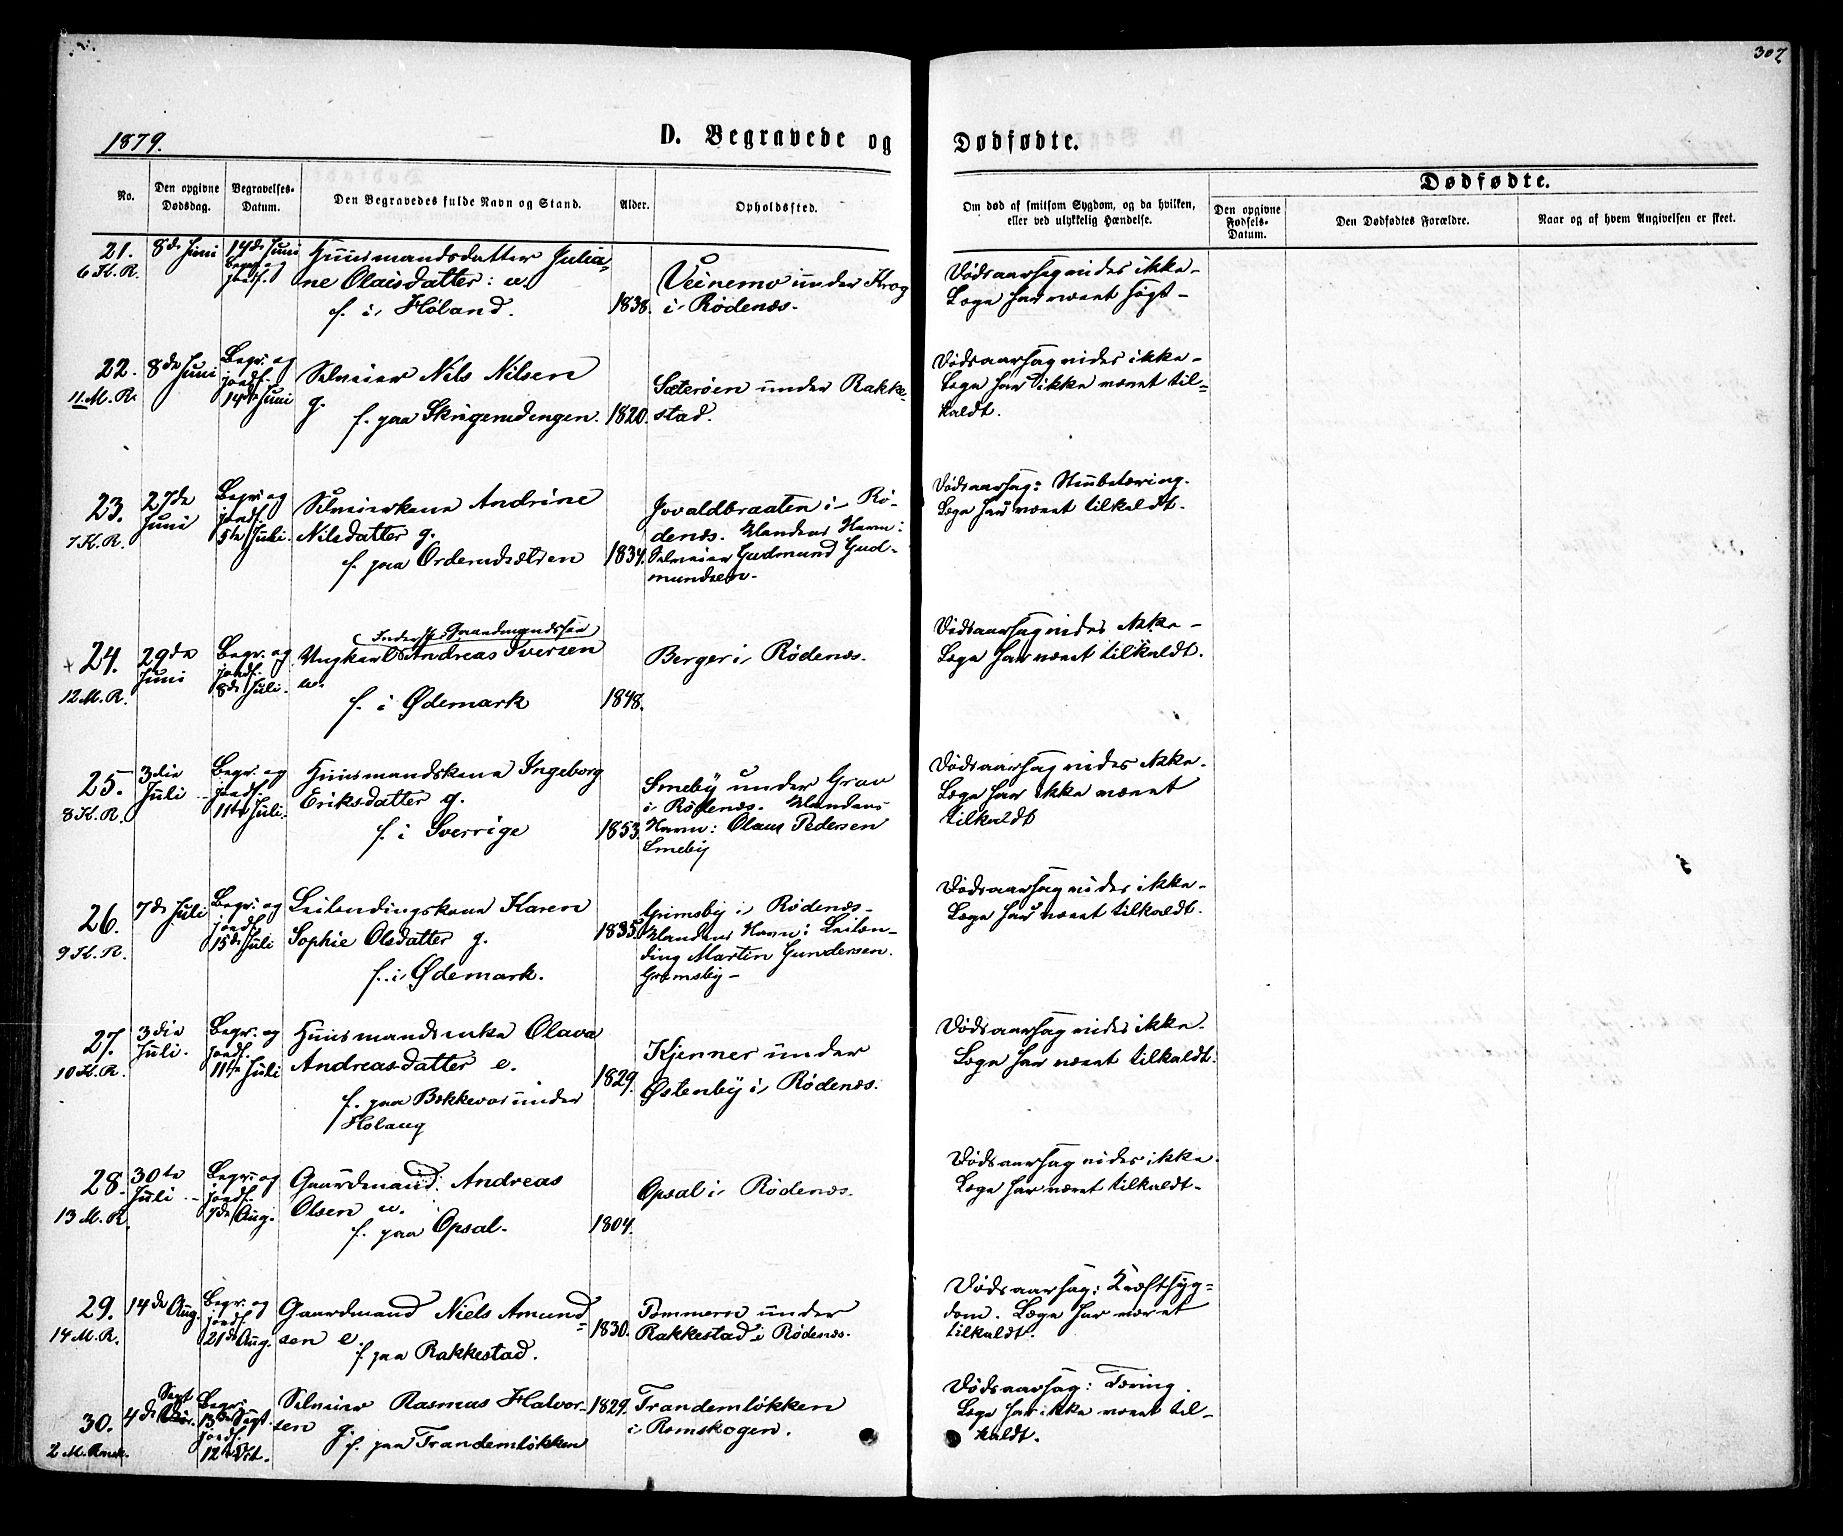 307
1879.
D. Begravede og Dødfødte.
No.
Den opgivne Dødsdag.
Begravelses-Datum.
Den Begravedes fulde Navn og Stand.
Alder.
Opholdssted.
Om død af smitsom Sygdom, og da hvilken, eller ved ulykkelig Hændelse.
Dødfødte.
Den opgivne Fødsels-Datum.
Den Dødfødtes Forældre.
Naar og af hvem Angivelsen er skeet.
21.
6 K. R.
8de Juni
14de Juni
Begr. og
jordf.
Huusmandsdatter Julia-
ne Olaisdatter: u.
f. i Høland.
1838.
Veinemo under Krog
i Rødenæs.
Dødsaarsag vides ikke-
Læge har været søgt-
22.
11 M. R.
8de Juni
Begr. og
jordf.
14de Juni
Selveier Nils Nilsen
g.
f. paa Skrigerudengen.
1820.
Sæterøen under Rakke-
stad.
Dødsaarsag vides ikke-
Læge har ikke været til-
kaldt.
23.
7 K. R.
27de
Juni
Begr. og
jordf.
5te Juli.
Selveierkone Andrine
Nilsdatter g.
f. paa Ordemdsætren
1834.
Jovaldbraaten i Rø-
denæs. Mandens Navn:
Selveier Gudmund Gud-
mundsen-
Dødsaarsag: Strubetæring.
Læge har været tilkaldt.
24.
12 M. R.
29de
Juni
Begr. og
jordf.
8de Juli.
Ungkarl Andreas Iversen
u.
f. i Ødemark
1848.
Berger i Rødenæs.
Dødsaarsag vides ikke-
Læge har været tilkaldt.
25.
8 K. R.
3die
Juli
Begr. og
jordf.
11te Juli.
Huusmandskone Ingeborg
Eriksdatter g.
f. i Sverrige
1853.
Smeby under Grav
i Rødenæs. Mandens
Navn: Olaus Pedersen
Smeby
Dødsaarsag vides ikke.
Læge har ikke været
tilkaldt
26.
9 K. R.
7de Juli
Begr. og
jordf.
15de Juli
Leilendingskone Karen
Sophie Olsdatter g.
f. i Ødemark.
1835.
Grimsby i Rødenæs-
Mandens Navn: Leilen-
ding Martin Gundersen.
Grimsby-
Dødsaarsag vides ikke-
Læge har været tilkaldt.
27.
10 K. R.
3die
Juli.
Begr. og
jordf.
11te Juli
Huusmandsenke Olava
Andreasdatter e.
f. paa Bækkevar under
Hølaug
1829.
Kjenner under
Østenby i Rødenæs.
Dødsaarsag vides ikke.
Læge har været tilkaldt.
28.
13 M. R.
30te
Juli
Begr. og
jordf.
7de Aug.
Gaardmand Andreas
Olsen u.
f. paa Opsal.
1804.
Opsal i Rødenæs.
Dødsaarsag vides ikke.
Læge har været tilkaldt-
29.
14 M. R.
14de Aug.
Begr. og
jordf.
21de Aug.
Gaardmand Niels Amund-
sen e.
f. paa Rakkestad.
1830.
Tømmeren under
Rakkestad i Rødenæs.
Dødsaarsag: Kræftsyg-
dom. Læge har været
tilkaldt.
30.
4de Sept
Begr.
13de Sept.
jordf.
12te Oct.
Selveier Rasmus Halvor-
sen g.
f. paa Trandemløkken
1829.
Trandemløkken
i Rømskogen.
Dødsaarsag: Tæring.
Læge har ikke været til-
kaldt.